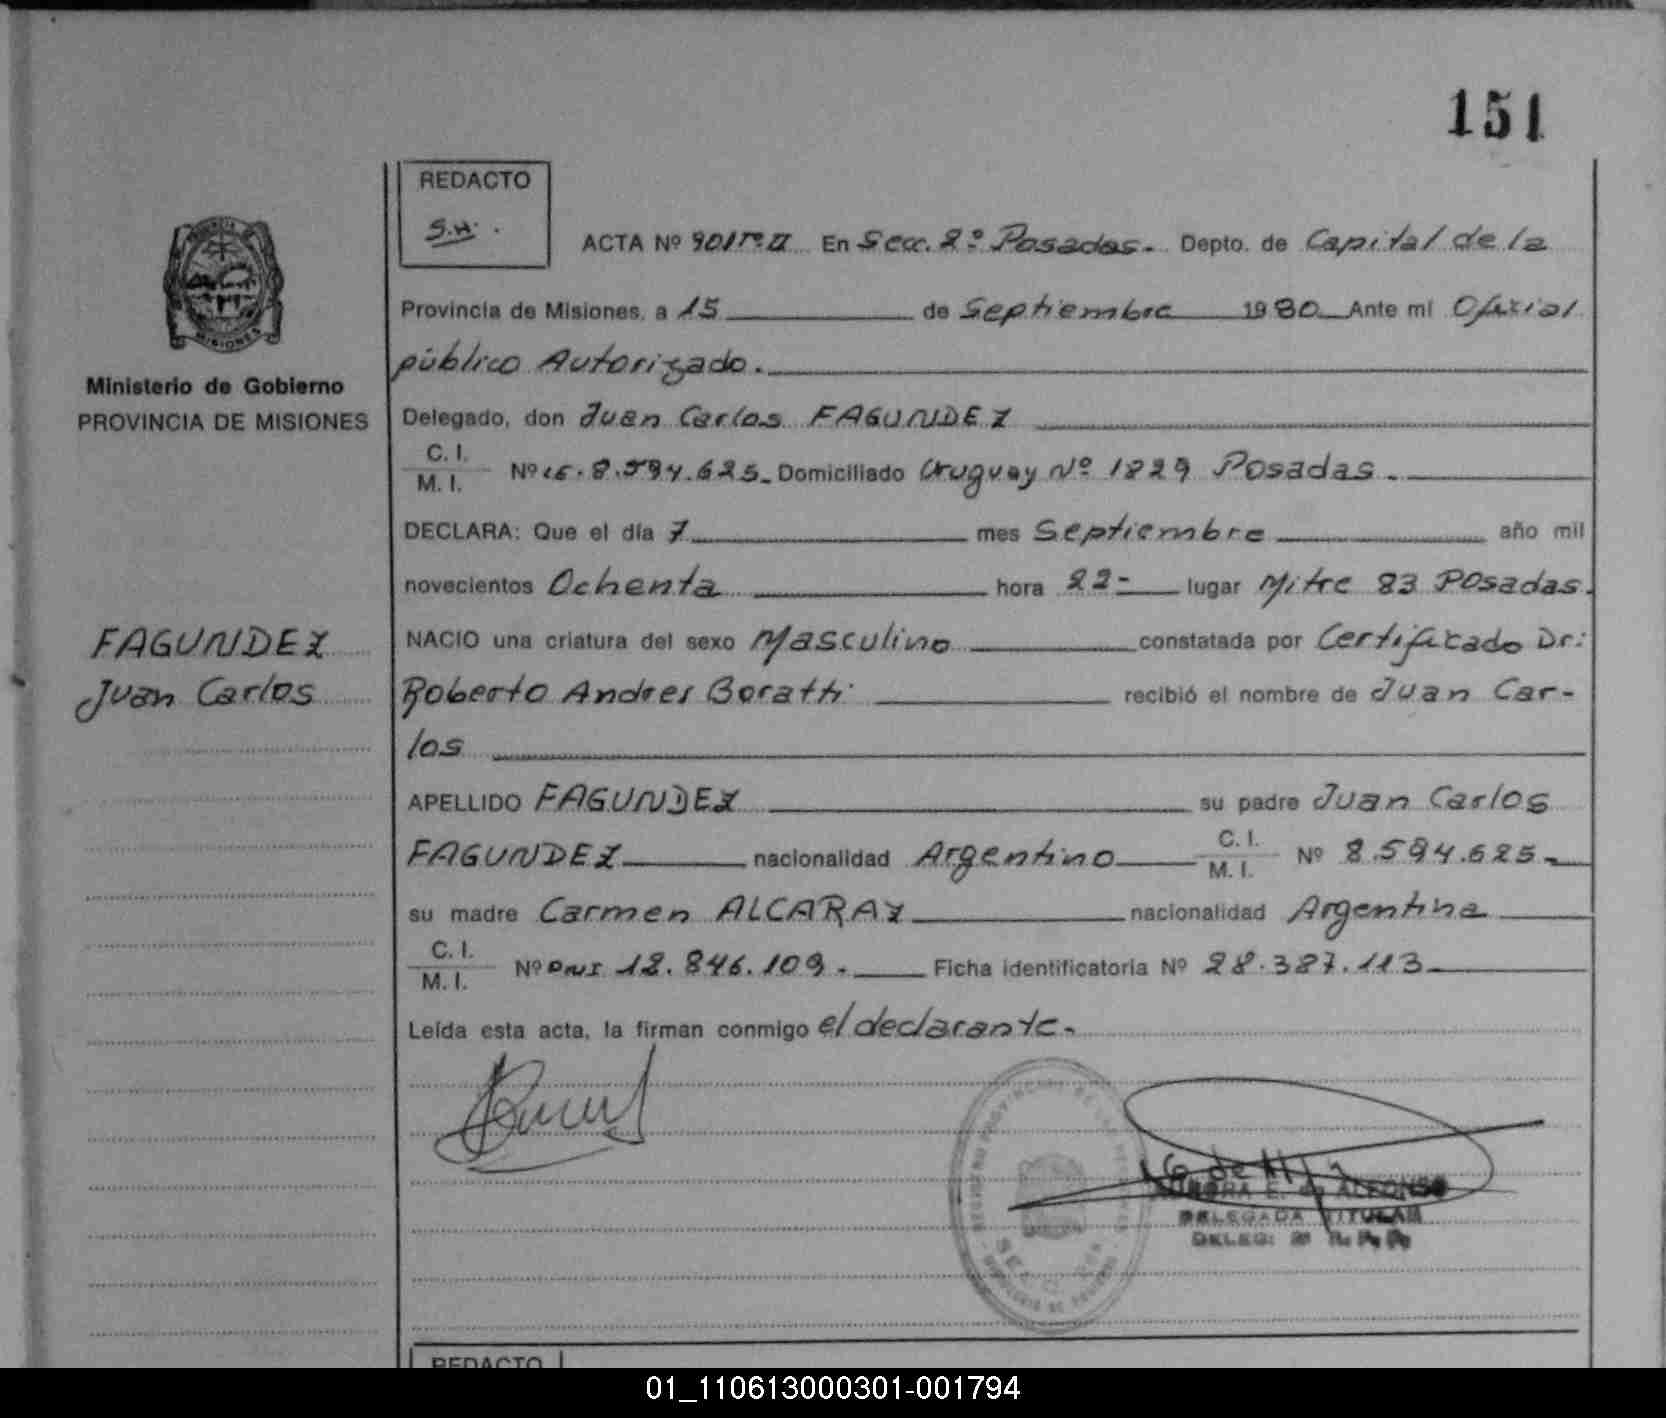 151
REDACTO
S.H.
ACTA Nº 901 Tº II En Secc. 2º Posadas. Depto. de Capital de la
Provincia de Misiones, a 15 de Septiembre 1980 Ante mi Oficial
público Autorizado.
Ministerio de Gobierno
PROVINCIA DE MISIONES
Delegado, don Juan Carlos FAGUNDEZ
C. I.
M. I. Nº LE. 8.594.625. Domiciliado Uruguay Nº 1829 Posadas.
DECLARA: Que el día 7 mes Septiembre año mil
novecientos Ochenta hora 22- lugar Mitre 83 Posadas.
FAGUNDEZ
Juan Carlos
NACIO una criatura del sexo Masculino constatada por Certificado Dr:
Roberto Andres Boratti recibió el nombre de Juan Car-
los
APELLIDO FAGUNDEZ su padre Juan Carlos
FAGUNDEZ nacionalidad Argentino C. I. M. I. Nº 8.594.625.
su madre Carmen ALCARAZ nacionalidad Argentina
C. I.
M. I. Nº DNI 12.846.109. Ficha identificatoria Nº 28.327.113
Leída esta acta, la firman conmigo el declarante.
E. de ALFONSO
DELEGADA TITULAR
DELEG: 2ª R. P. P.
REDACTO
01_110613000301-001794